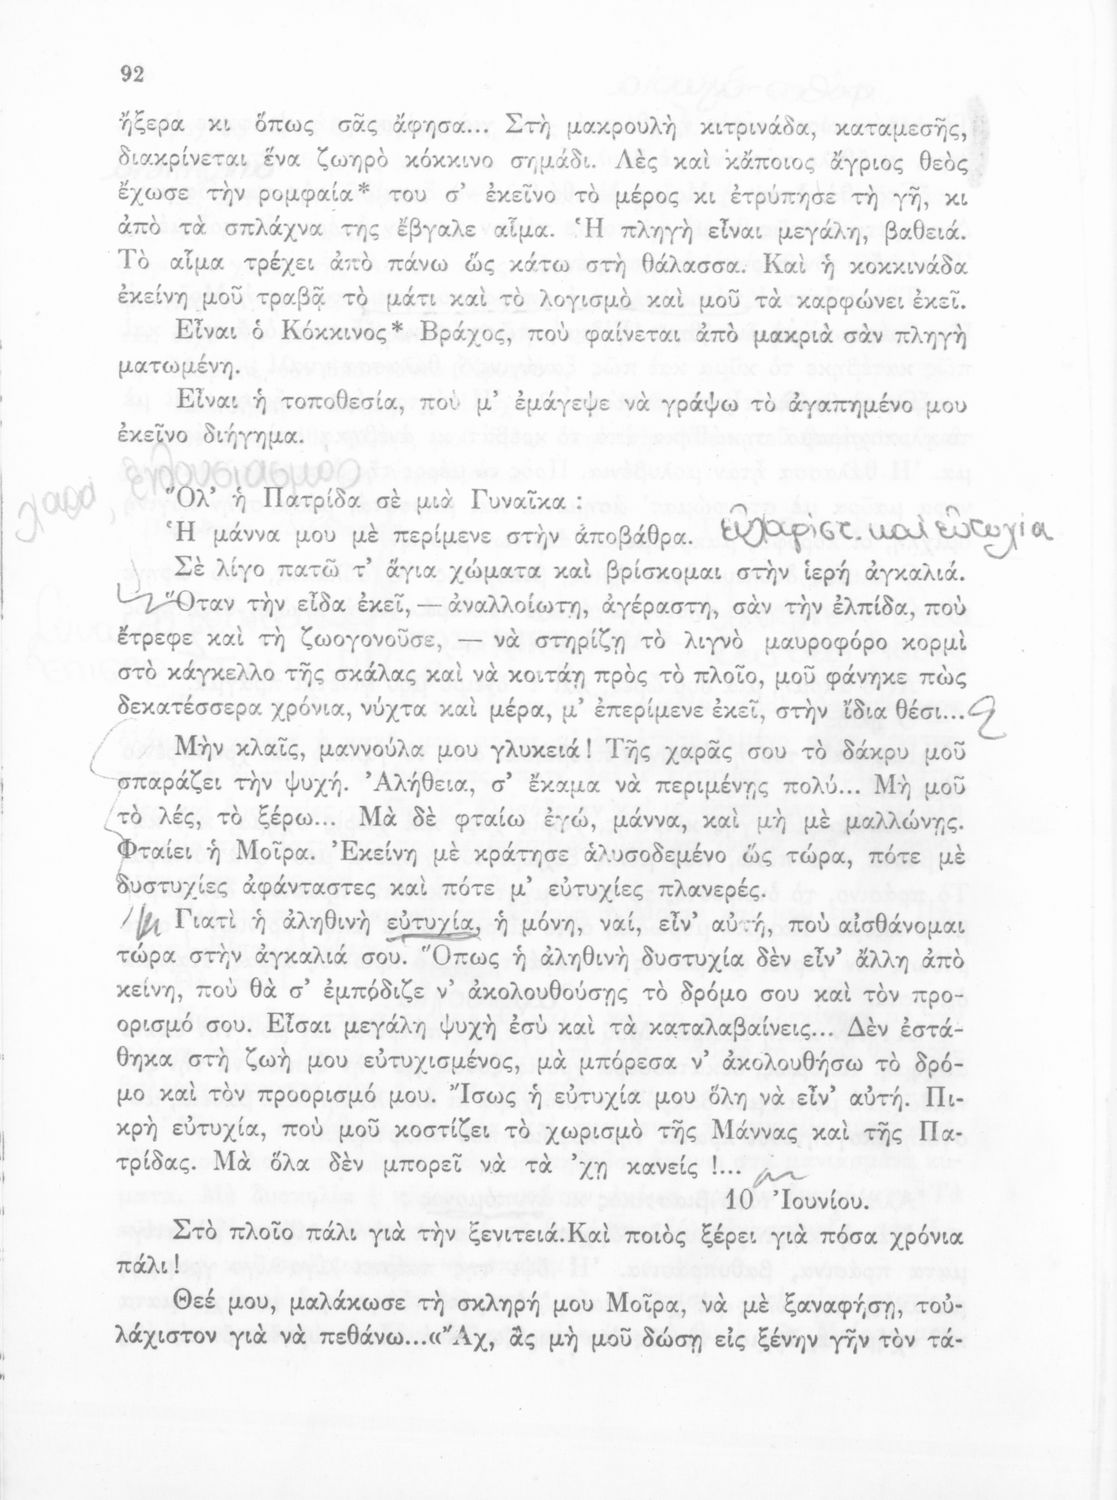 92
ἤξερα κι ὅπως σᾶς ἄφησα... Στὴ μακρουλὴ κιτρινάδα, καταμεσῆς,
διακρίνεται ἕνα ζωηρὸ κόκκινο σημάδι. Λὲς καὶ κάποιος ἄγριος θεὸς
ἔχωσε τὴν ρομφαία* του σ' ἐκεῖνο τὸ μέρος κι ἐτρύπησε τὴ γῆ, κι
ἀπὸ τὰ σπλάχνα της ἔβγαλε αἷμα. Ἡ πληγὴ εἶναι μεγάλη, βαθειά.
Τὸ αἷμα τρέχει ἀπὸ πάνω ὥς κάτω στὴ θάλασσα. Καὶ ἡ κοκκινάδα
ἐκείνη μοῦ τραβᾷ τὸ μάτι καὶ τὸ λογισμὸ καὶ μοῦ τὰ καρφώνει ἐκεῖ.
Εἶναι ὁ Κόκκινος* Βράχος, ποὺ φαίνεται ἀπὸ μακριὰ σὰν πληγὴ
ματωμένη.
Εἶναι ἡ τοποθεσία, ποὺ μ' ἐμάγεψε νὰ γράψω τὸ ἀγαπημένο μου
ἐκεῖνο διήγημα.
χαρά,
Ὅλ' ἡ Πατρίδα σὲ μιὰ Γυναῖκα :
Ἡ μάννα μου μὲ περίμενε στὴν ἀποβάθρα. εὐχαριστ. καὶ εὐτυχία
Σὲ λίγο πατῶ τ' ἅγια χώματα καὶ βρίσκομαι στὴν ἱερή ἀγκαλιά.
Ὅταν τὴν εἶδα ἐκεῖ, — ἀναλλοίωτη, ἀγέραστη, σὰν τὴν ἐλπίδα, ποὺ
ἔτρεφε καὶ τὴ ζωογονοῦσε, — νὰ στηρίζῃ τὸ λιγνὸ μαυροφόρο κορμὶ
στὸ κάγκελλο τῆς σκάλας καὶ νὰ κοιτάῃ πρὸς τὸ πλοῖο, μοῦ φάνηκε πὼς
δεκατέσσερα χρόνια, νύχτα καὶ μέρα, μ' ἐπερίμενε ἐκεῖ, στὴν ἴδια θέσι...
Μὴν κλαῖς, μαννούλα μου γλυκειά! Τῆς χαρᾶς σου τὸ δάκρυ μοῦ
σπαράζει τὴν ψυχή. Ἀλήθεια, σ' ἔκαμα νὰ περιμένῃς πολύ... Μὴ μοῦ
τὸ λές, τὸ ξέρω... Μὰ δὲ φταίω ἐγώ, μάννα, καὶ μὴ μὲ μαλλώνῃς.
Φταίει ἡ Μοῖρα. Ἐκείνη μὲ κράτησε ἁλυσοδεμένο ὥς τώρα, πότε μὲ
δυστυχίες ἀφάνταστες καὶ πότε μ' εὐτυχίες πλανερές.
Γιατὶ ἡ ἀληθινὴ εὐτυχία, ἡ μόνη, ναί, εἶν' αὐτή, ποὺ αἰσθάνομαι
τώρα στὴν ἀγκαλιά σου. Ὅπως ἡ ἀληθινὴ δυστυχία δὲν εἶν' ἄλλη ἀπὸ
κείνη, ποὺ θὰ σ' ἐμπόδιζε ν' ἀκολουθούσῃς τὸ δρόμο σου καὶ τὸν προ-
ορισμό σου. Εἶσαι μεγάλη ψυχὴ ἐσὺ καὶ τὰ καταλαβαίνεις... Δὲν ἐστά-
θηκα στὴ ζωὴ μου εὐτυχισμένος, μὰ μπόρεσα ν' ἀκολουθήσω τὸ δρό-
μο καὶ τὸν προορισμό μου. Ἴσως ἡ εὐτυχία μου ὅλη νὰ εἶν' αὐτή. Πι-
κρὴ εὐτυχία, ποὺ μοῦ κοστίζει τὸ χωρισμὸ τῆς Μάννας καὶ τῆς Πα-
τρίδας. Μὰ ὅλα δὲν μπορεῖ νὰ τὰ 'χῃ κανείς !...
10 Ἰουνίου.
Στὸ πλοῖο πάλι γιὰ τὴν ξενιτειά.Καὶ ποιὸς ξέρει γιὰ πόσα χρόνια
πάλι!
Θεέ μου, μαλάκωσε τὴ σκληρή μου Μοῖρα, νὰ μὲ ξαναφήσῃ, τοὐ-
λάχιστον γιὰ νὰ πεθάνω...«Ἄχ, ἂς μὴ μοῦ δώσῃ εἰς ξένην γῆν τὸν τά-